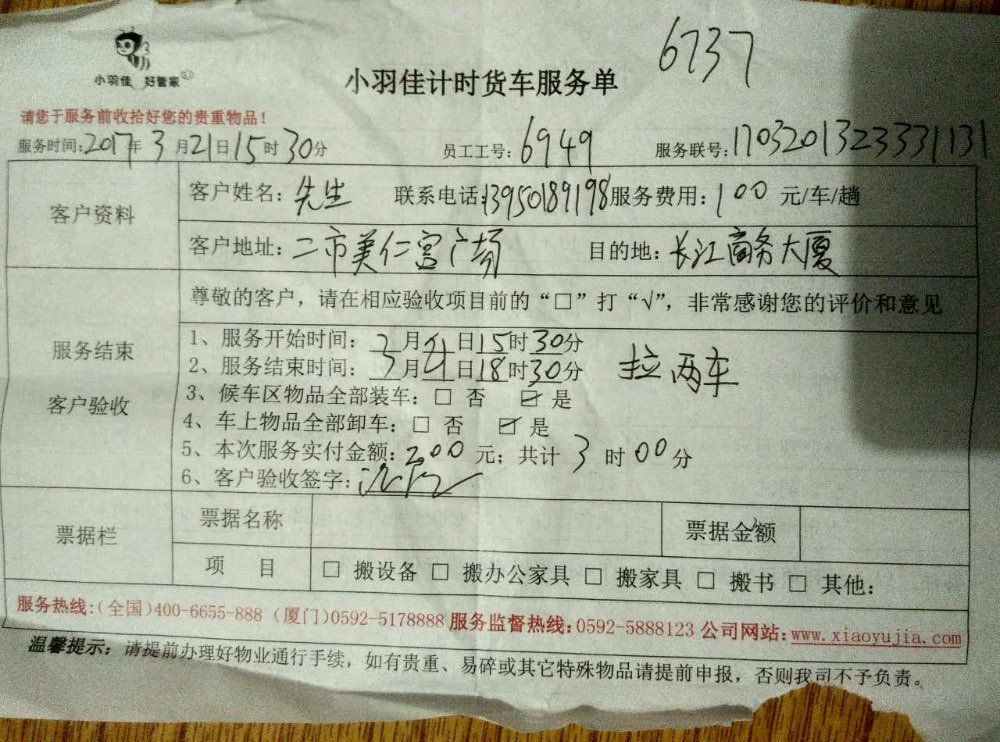 6737
小羽佳 好管家
小羽佳计时货车服务单
请您于服务前收拾好您的贵重物品！
服务时间:2017年3月21日15时30分 员工工号:6949 服务联号:1703201323331131
客户资料
客户姓名:先生 联系电话:13950189198 服务费用:100元/车/趟
客户地址:二市美仁宫广场 目的地:长江商务大厦
服务结束
客户验收
尊敬的客户，请在相应验收项目前的“□”打“√”，非常感谢您的评价和意见
1、服务开始时间:3月21日15时30分
2、服务结束时间:3月21日18时30分 拉两车
3、候车区物品全部装车:□ 否 ☑ 是
4、车上物品全部卸车:□ 否 ☑ 是
5、本次服务实付金额:200元；共计3时00分
6、客户验收签字:
票据栏
票据名称 票据金额
项 目 □ 搬设备 □ 搬办公家具 □ 搬家具 □ 搬书 □ 其他:
服务热线:(全国)400-6655-888 (厦门)0592-5178888 服务监督热线:0592-5888123 公司网站:www.xiaoyujia.com
温馨提示:请提前办理好物业通行手续，如有贵重、易碎或其它特殊物品请提前申报，否则我司不予负责。